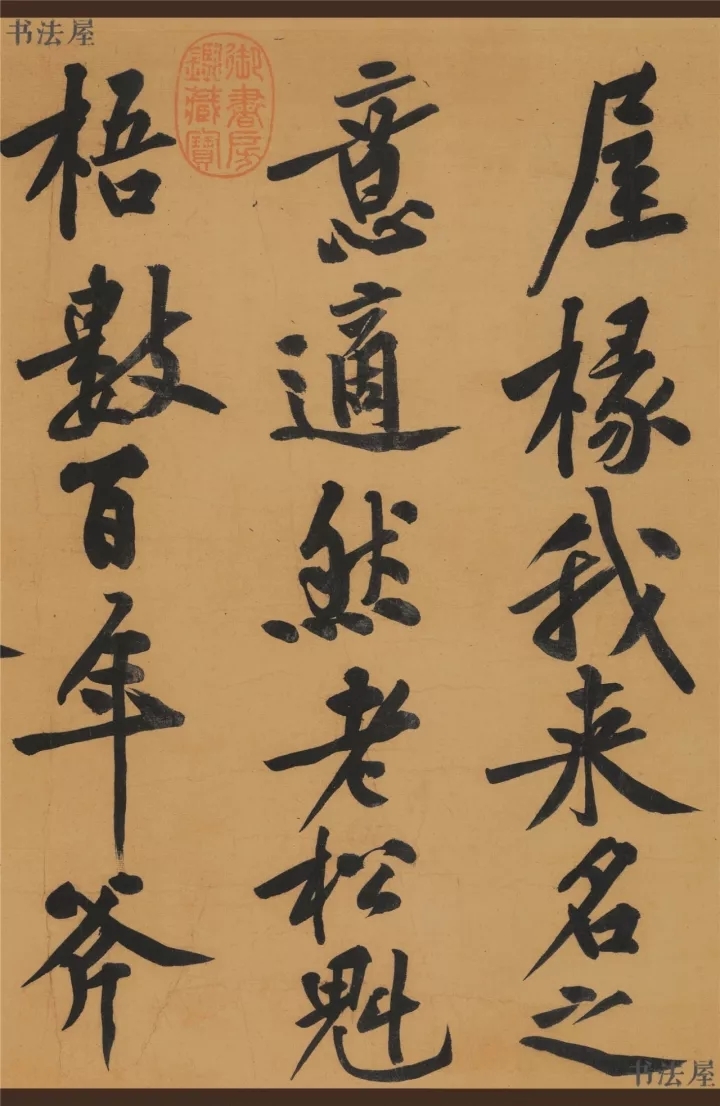 书法屋
屋椽我来名之
意適然老松魁
梧數百年斧
御書房
鑑藏寶
书法屋